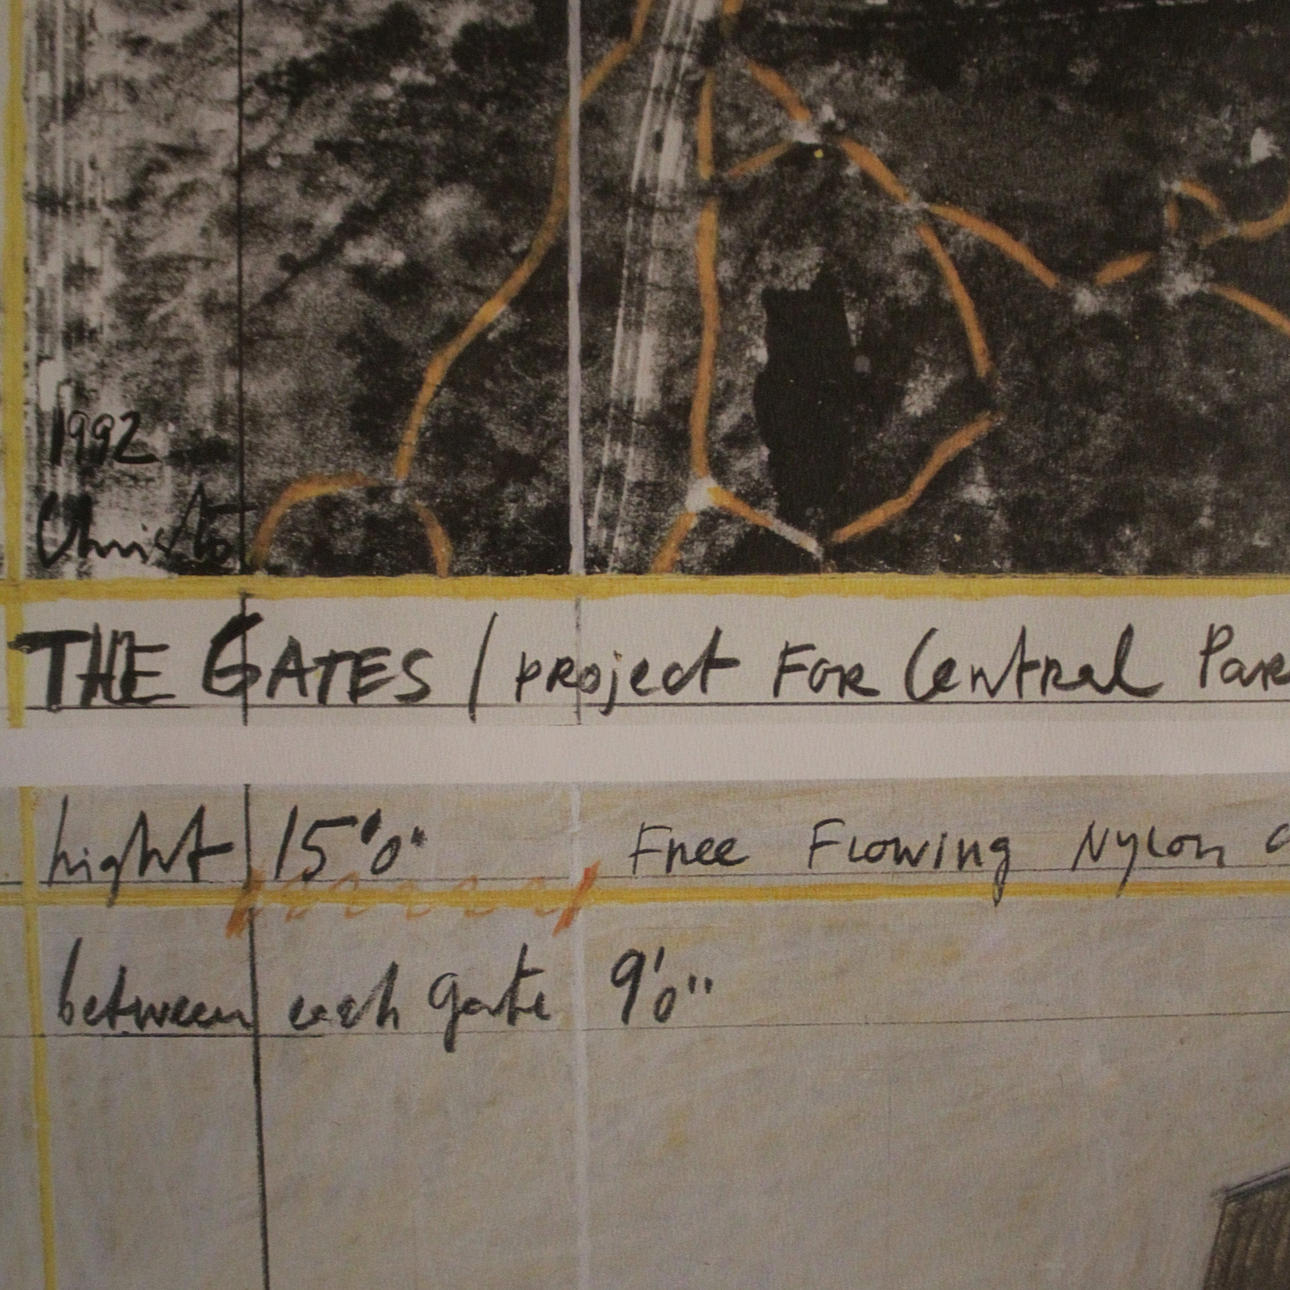 1992
Christo
THE GATES / PROJECT FOR Central Par
hight 15'0" Free Flowing Nylon
between each gate 9'0"